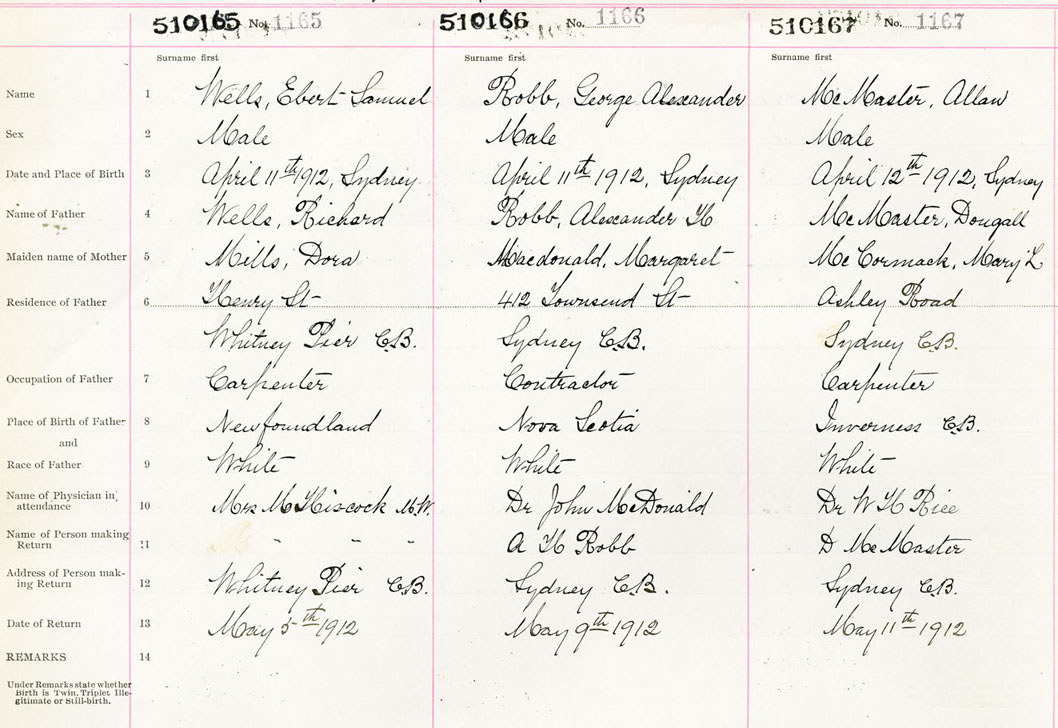 510165 No. 1165 510166 No. 1166 510167 No. 1167
Surname first Surname first Surname first
Name 1 Wells, Ebert Samuel Robb, George Alexander McMaster, Allan
Sex 2 Male Male Male
Date and Place of Birth 3 April 11th 1912, Sydney April 11th 1912, Sydney April 12th 1912, Sydney
Name of Father 4 Wells, Richard Robb, Alexander H McMaster, Dougall
Maiden name of Mother 5 Mills, Dora Macdonald, Margaret McCormack, Mary L
Residence of Father 6 Henry St 412 Townsend St Ashley Road
Whitney Pier C.B. Sydney C.B. Sydney C.B.
Occupation of Father 7 Carpenter Contractor Carpenter
Place of Birth of Father 8 Newfoundland Nova Scotia Inverness C.B.
and
Race of Father 9 White White White
Name of Physician in attendance 10 Mrs M Hiscock M.W. Dr John McDonald Dr W H Rice
Name of Person making Return 11 " " " A H Robb D McMaster
Address of Person mak-ing Return 12 Whitney Pier C.B. Sydney C.B. Sydney C.B.
Date of Return 13 May 5th 1912 May 9th 1912 May 11th 1912
REMARKS 14
Under Remarks state whether
Birth is Twin, Triplet Ille-
gitimate or Still-birth.